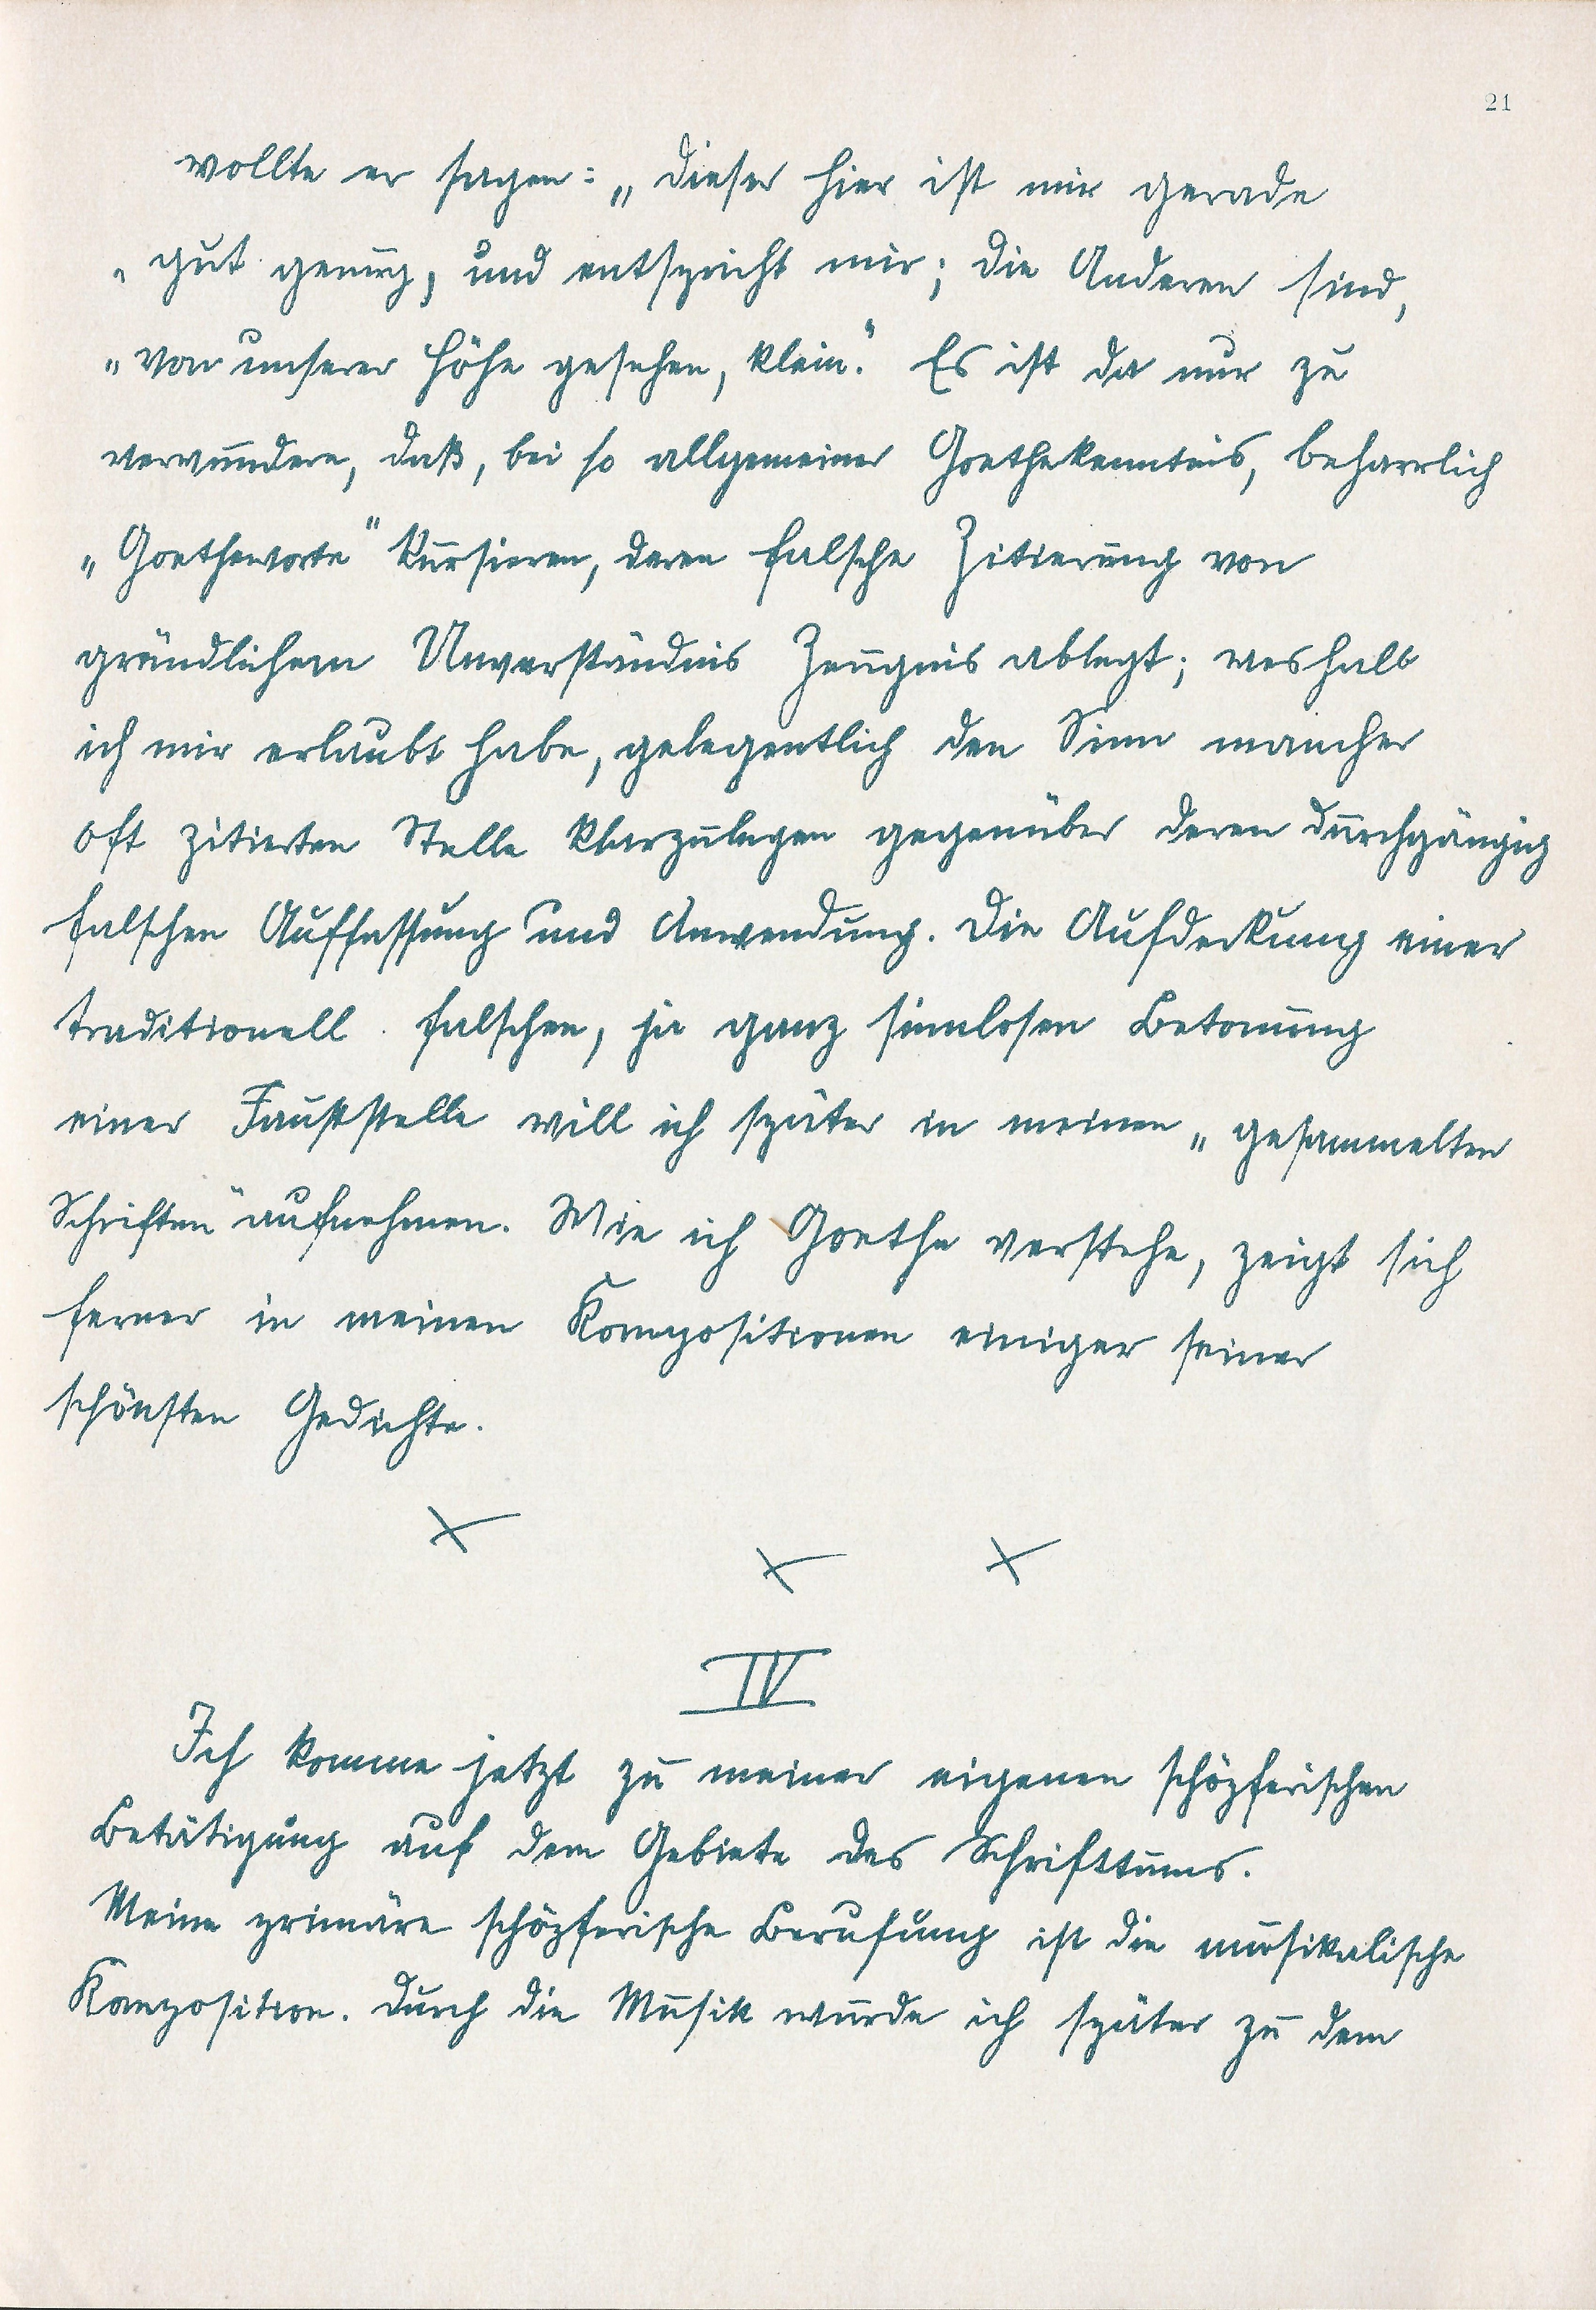 21
wollte er sagen: „Dieser hier ist mir gerade
„gut genug, und entspricht mir; die Anderen sind,
„von unserer Höhe gesehen, klein.“ Es ist da nur zu
verwundern, daß, bei so allgemeiner Goethekenntnis, beharrlich
„Goetheworte“ kursieren, deren falsche Zitierung von
gründlichem Unverständnis Zeugnis ablegt; weshalb
ich mir erlaubt habe, gelegentlich den Sinn mancher
oft zitierten Stelle klarzulegen gegenüber deren durchgängig
falschen Auffassung und Anwendung. Die Aufdeckung einer
traditionell falschen, ja ganz sinnlosen Betonung
einer Fauststelle will ich später in meinen „gesammelten
Schriften“ aufnehmen. Wie ich Goethe verstehe, zeigt sich
ferner in meinen Kompositionen einiger seiner
schönsten Gedichte.
× × ×
IV
Ich komme jetzt zu meiner eigenen schöpferischen
Betätigung auf dem Gebiete des Schrifttums.
Meine primäre schöpferische Berufung ist die musikalische
Komposition. Durch die Musik wurde ich später zu dem